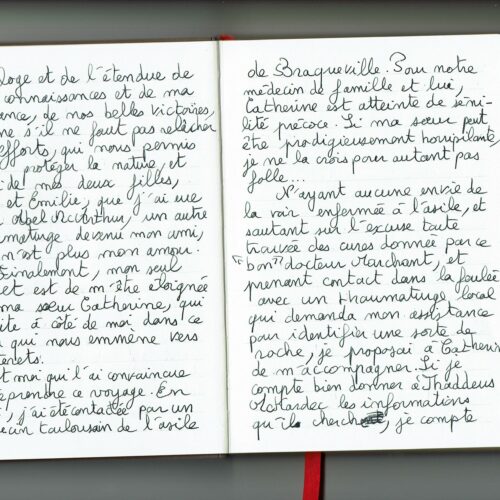 loge et de l'étendue de
connaissances et de ma
ance, de nos belles victoires,
ne s'il ne faut pas relâcher
efforts, qui nous permis
protéger la nature, et
de mes deux filles,
et Emilie, que j'ai vue
Abel McArthur, un autre
maturge devenu mon ami,
n'est plus mon amour.
Finalement, mon seul
et est de m'être éloignée
ma sœur Catherine, qui
ite à côté de moi dans ce
qui nous emmène vers
erets.
t moi qui l'ai convaincue
reprendre ce voyage. En
, j'ai été contactée par un
ecin toulousain de l'asile
de Braqueville. Pour notre
médecin de famille et lui,
Catherine est atteinte de séni-
lité précoce. Si ma sœur peut
être prodigieusement horripilante,
je ne la crois pour autant pas
folle...
N'ayant aucune envie de
la voir enfermée à l'asile, et
sautant sur l'excuse toute
trouvée des cures donnée par ce
"bon" docteur Marchant, et
prenant contact dans la foulée
avec un thaumaturge local
qui demanda mon assistance
pour identifier une sorte de
roche, je proposai à Catherine
de m'accompagner. Si je
compte bien donner à Thaddeus
les informations
qu'il cherche, je compte